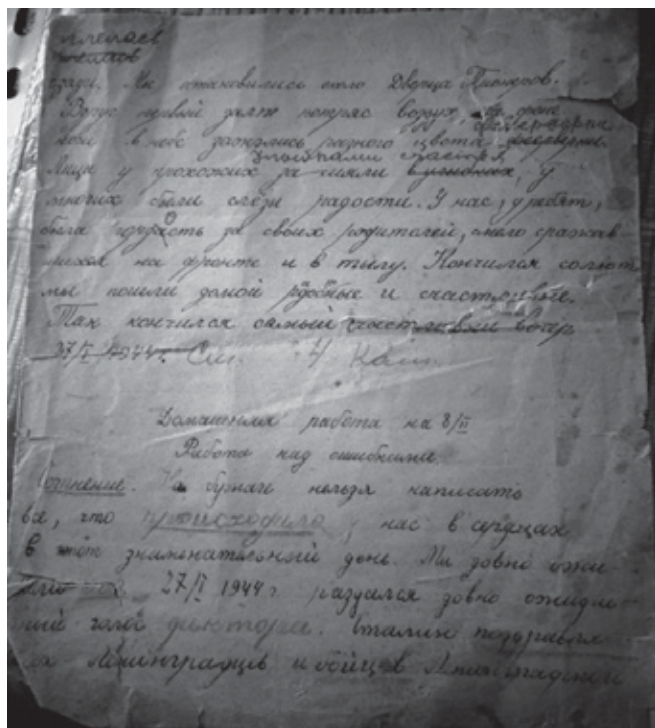 сзади. Мы остановились около Дворца Пионеров.
Вдруг первый залп потряс воздух, на фоне
в небе зажглись разного цвета фейерверки
улыбками счастья
Лица у прохожих за сияли у
многих были слёзы радости. У нас, у ребят,
была гордость за своих родителей, смело сражав-
шихся на фронте и в тылу. Кончился салют
мы пошли домой и счастливые.
Так кончился самый счастливый вечер
27/I 1944 г. См. 4
Домашняя работа на 8/II
Работа над ошибками
Сочинение. На бумаге нельзя написать
все, что происходило у нас в сердцах
в этот знаменательный день. Мы давно ожи-
27/I 1944 г. раздался давно ожидае-
голос диктора. Сталин поздравля
Ленинградцев и бойцов